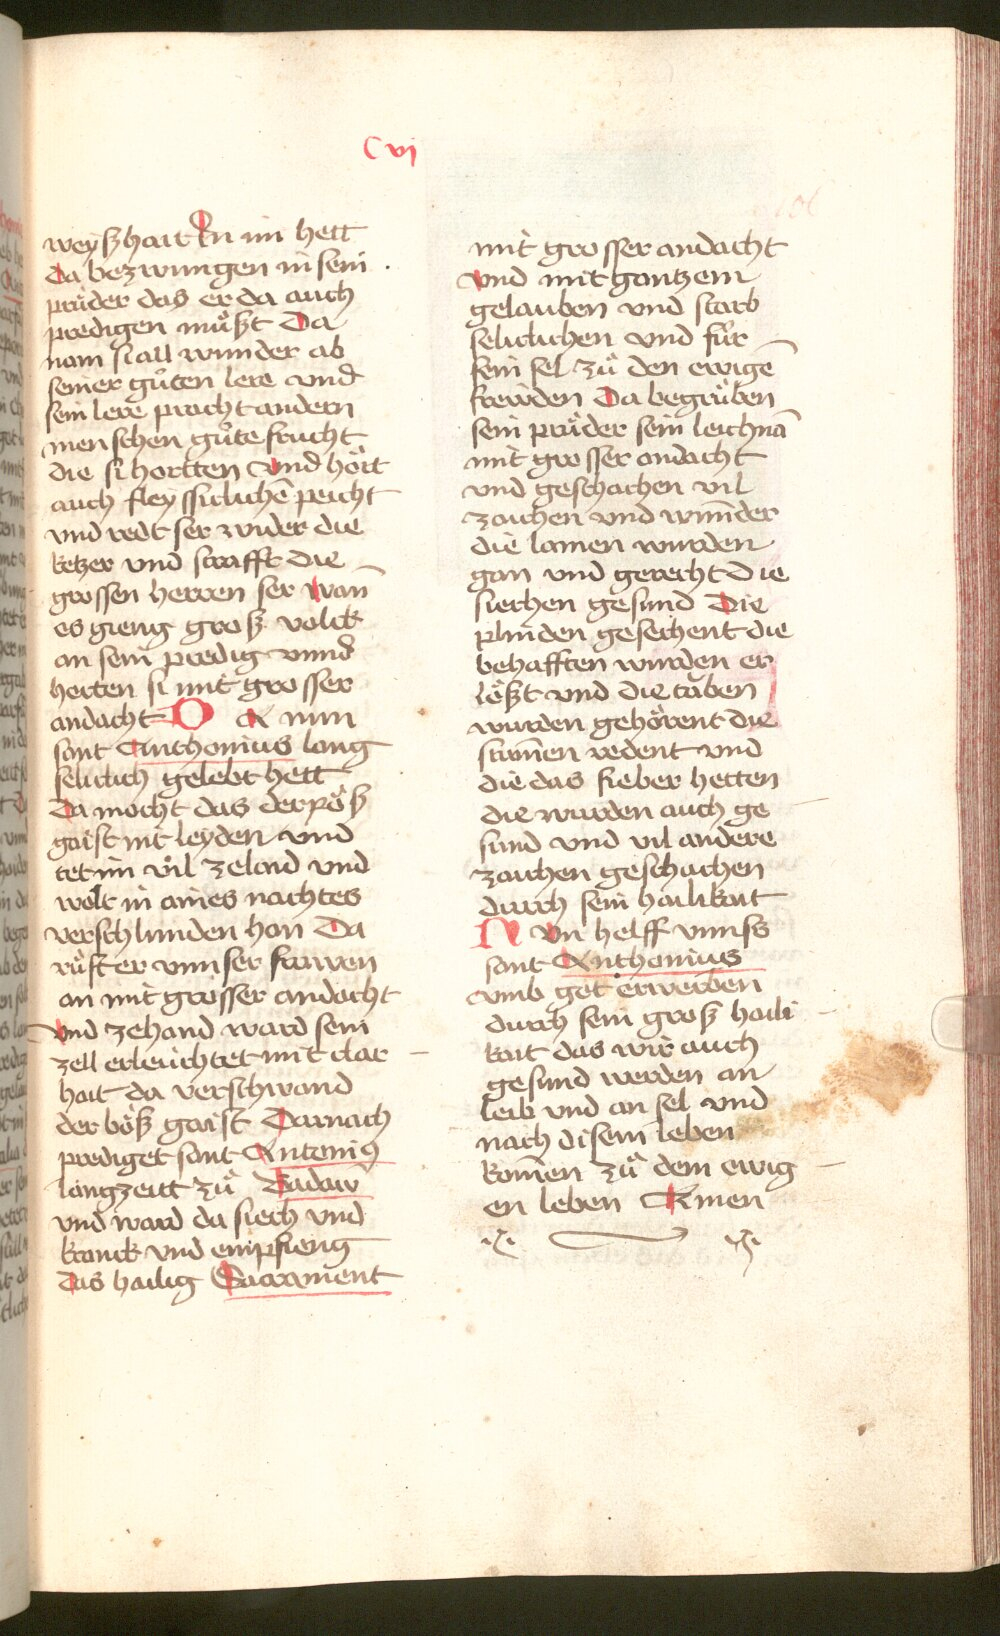 C vj
weyszhait En im hett
Da bezwungen in sein
prüder das er da auch
predigen müszt Da
nam si all wunder ab
seiner gůten lere vnd
sein lere pracht andern
menschen gůte frucht
die si hortten Vnd hört
auch fleyssiclichē peicht
vnd redt ser wider die
ketzer vnd strafft die
grossen herren ser Wan̄
es gieng grosz volck
an sein predig vnnd
herten si mit grosser
andacht Do A nun
sant Anthonius lang
seliclich gelebt hett
Da mocht das der pösz
gaist nit leyden vnd
tet im vil ze laid vnd
wolt in aines nachtes
verschlunden han Da
rüft er vnnser frawen
an mit grosser andacht
Vnd zehand ward sein
zell erleuchtet mit clar
hait da verschwand
der bösz gaist Darnach
prediget sant Antoniꝰ
langzeitt zů Badaw
vnd ward da siech vnd
kranck vnd empfieng
Das hailig Sacrament
mit grosser andacht
Vnd mit gantzem
gelauben vnd starb
seliclichen vnd für
sein sel zů den ewigē
frewden Da begrüben
sein prüder sein leichnā
mit grosser andacht
vnd geschachen vil
zaichen vnd wunder
die lamen wurden
gan vnd gerecht Die
siechen gesund Die
plinden gesechent die
behafften wurden er
löszt vnd die taben
wurden gehörent die
stum̄en redent vnd
die das fieber hetten
die wurden auch ge
sund vnd vil andere
zaichen geschachen
durch sein hailikait
N Vn helff vnnss
sant Anthonius
vmb got erwerben
durch sein grosz haili
kait das wir auch
gesund werden an
leib vnd an sel vnd
nach disem leben
kom̄en zů dem ewig
en leben Amen